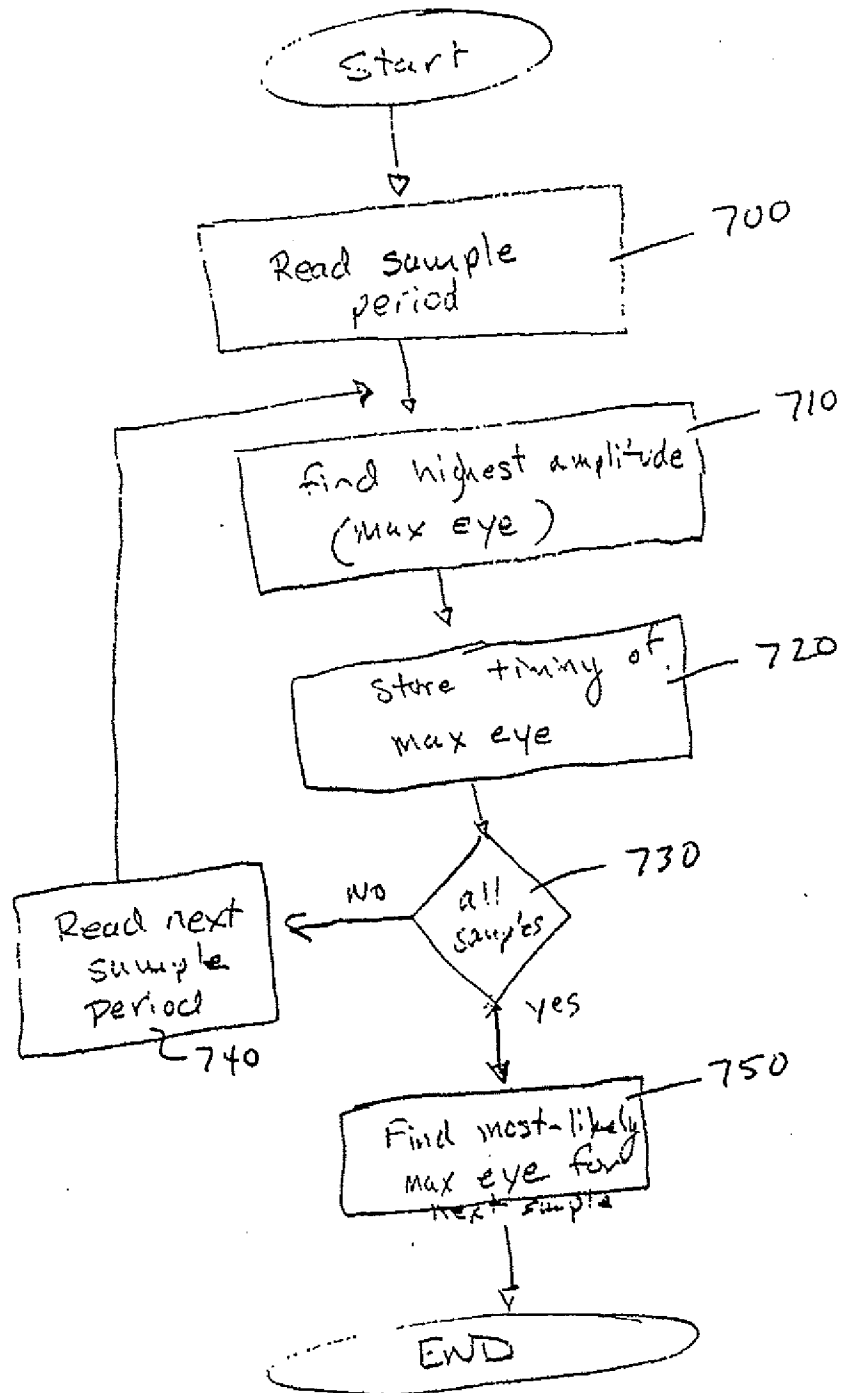 Start
Read sample
period
700
find highest amplitude
(max eye)
710
Store timing of
max eye
720
all
samples
730
No
Read next
sample
period
740
yes
Find most-likely
max eye for
next sample
750
END